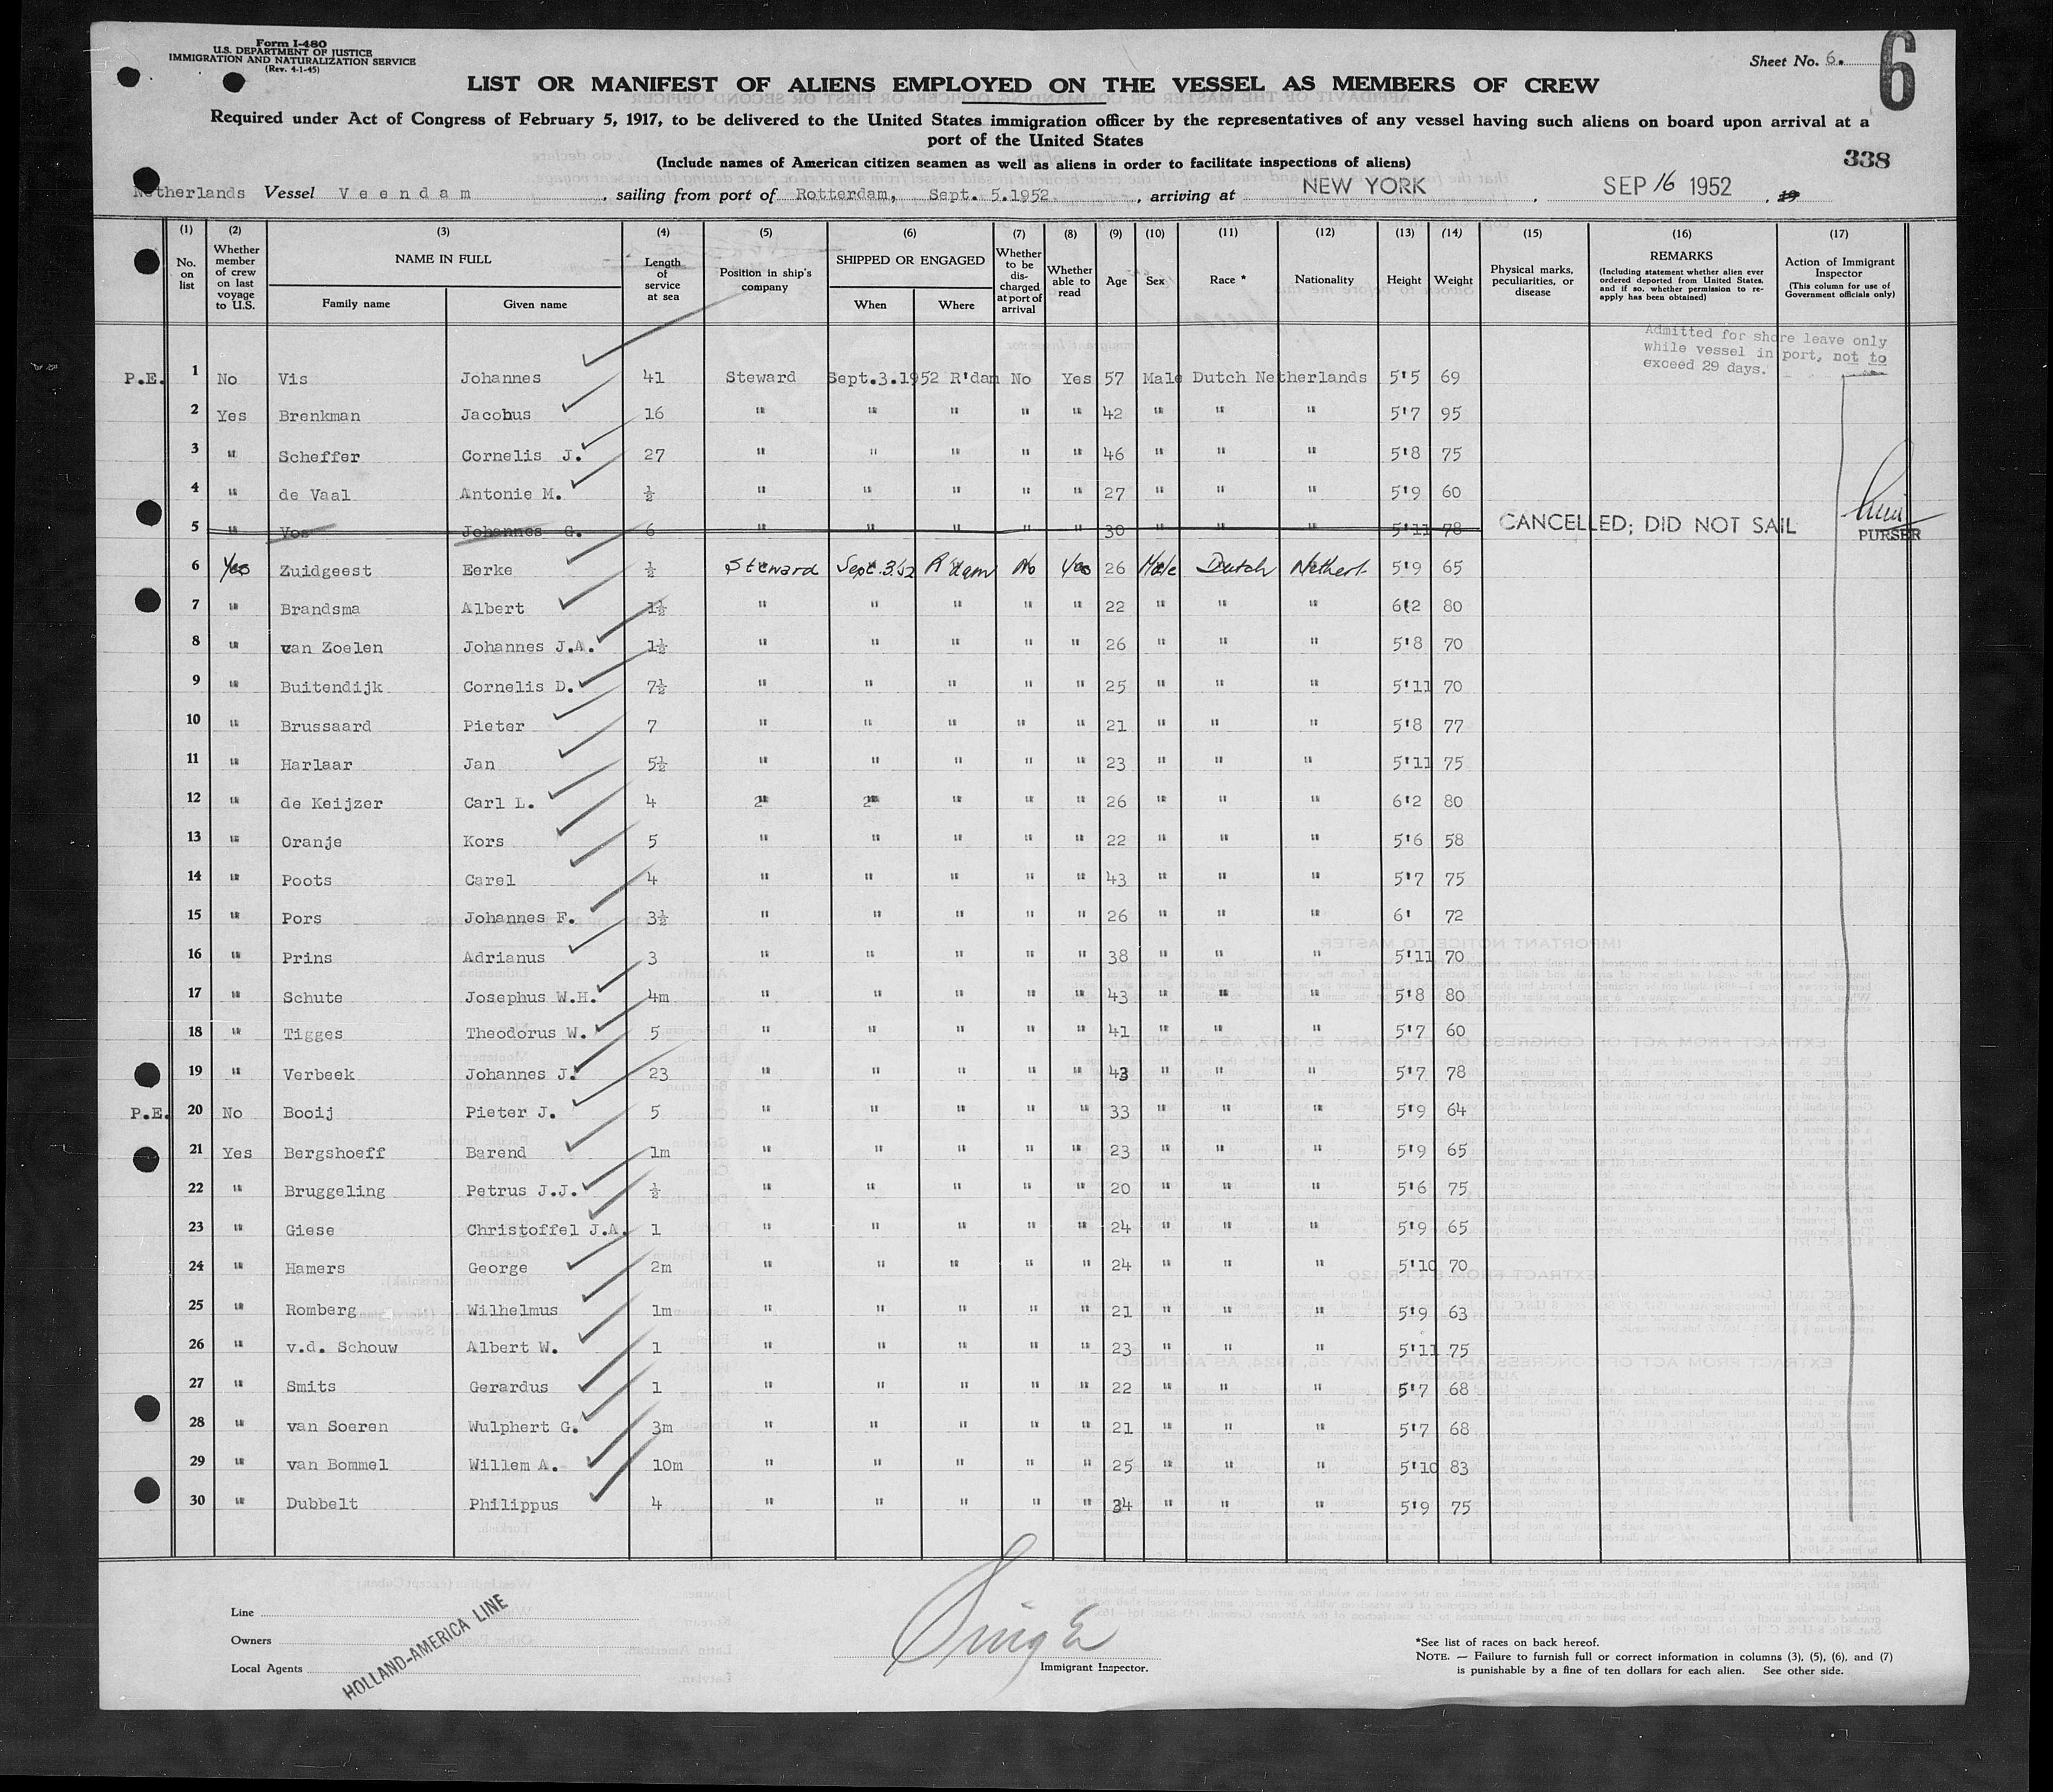 Form I-480
U.S. DEPARTMENT OF JUSTICE
IMMIGRATION AND NATURALIZATION SERVICE
(Rev. 4-1-45)
Sheet No. 6.
6
LIST OR MANIFEST OF ALIENS EMPLOYED ON THE VESSEL AS MEMBERS OF CREW
Required under Act of Congress of February 5, 1917, to be delivered to the United States immigration officer by the representatives of any vessel having such aliens on board upon arrival at a
port of the United States
(Include names of American citizen seamen as well as aliens in order to facilitate inspections of aliens)
338
Netherlands Vessel Veendam, sailing from port of Rotterdam, Sept. 5.1952, arriving at NEW YORK, SEP 16 1952, 19
(1) (2) (3) (4) (5) (6) (7) (8) (9) (10) (11) (12) (13) (14) (15) (16) (17)
No. on list
Whether member of crew on last voyage to U.S.
NAME IN FULL
Family name
Given name
Length of service at sea
Position in ship's company
SHIPPED OR ENGAGED
When
Where
Whether to be discharged at port of arrival
Whether able to read
Age
Sex
Race *
Nationality
Height
Weight
Physical marks, peculiarities, or disease
REMARKS
(Including statement whether alien ever ordered deported from United States, and if so, whether permission to reapply has been obtained)
Action of Immigrant Inspector
(This column for use of Government officials only)
Admitted for shore leave only
while vessel in port, not to
exceed 29 days.
P.E. 1 No Vis Johannes 41 Steward Sept.3.1952 R'dam No Yes 57 Male Dutch Netherlands 5'5 69
2 Yes Brenkman Jacobus 16 " " " " " 42 " " " 5'7 95
3 " Scheffer Cornelis J. 27 " " " " " 46 " " " 5'8 75
4 " de Vaal Antonie M. ½ " " " " " 27 " " " 5'9 60
5 " Vos Johannes G. 6 " " " " " 30 " " " 5'11 78 CANCELLED; DID NOT SAIL
PURSER
6 Yes Zuidgeest Eerke ½ Steward Sept.3.52 R'dam No Yes 26 Male Dutch Netherl. 5'9 65
7 " Brandsma Albert 1½ " " " " " 22 " " " 6'2 80
8 " van Zoelen Johannes J.A. 1½ " " " " " 26 " " " 5'8 70
9 " Buitendijk Cornelis D. 7½ " " " " " 25 " " " 5'11 70
10 " Brussaard Pieter 7 " " " " " 21 " " " 5'8 77
11 " Harlaar Jan 5½ " " " " " 23 " " " 5'11 75
12 " de Keijzer Carl L. 4 " " " " " 26 " " " 6'2 80
13 " Oranje Kors 5 " " " " " 22 " " " 5'6 58
14 " Poots Carel 4 " " " " " 43 " " " 5'7 75
15 " Pors Johannes F. 3½ " " " " " 26 " " " 6' 72
16 " Prins Adrianus 3 " " " " " 38 " " " 5'11 70
17 " Schute Josephus W.H. 4m " " " " " 43 " " " 5'8 80
18 " Tigges Theodorus W. 5 " " " " " 41 " " " 5'7 60
19 " Verbeek Johannes J. 23 " " " " " 43 " " " 5'7 78
P.E. 20 No Booij Pieter J. 5 " " " " " 33 " " " 5'9 64
21 Yes Bergshoeff Barend 1m " " " " " 23 " " " 5'9 65
22 " Bruggeling Petrus J.J. ½ " " " " " 20 " " " 5'6 75
23 " Giese Christoffel J.A. 1 " " " " " 24 " " " 5'9 65
24 " Hamers George 2m " " " " " 24 " " " 5'10 70
25 " Romberg Wilhelmus 1m " " " " " 21 " " " 5'9 63
26 " v.d. Schouw Albert W. 1 " " " " " 23 " " " 5'11 75
27 " Smits Gerardus 1 " " " " " 22 " " " 5'7 68
28 " van Soeren Wulphert G. 3m " " " " " 21 " " " 5'7 68
29 " van Bommel Willem A. 10m " " " " " 25 " " " 5'10 83
30 " Dubbelt Philippus 4 " " " " " 34 " " " 5'9 75
Line
Owners
Local Agents
HOLLAND-AMERICA LINE
Immigrant Inspector.
*See list of races on back hereof.
NOTE. — Failure to furnish full or correct information in columns (3), (5), (6), and (7)
is punishable by a fine of ten dollars for each alien. See other side.